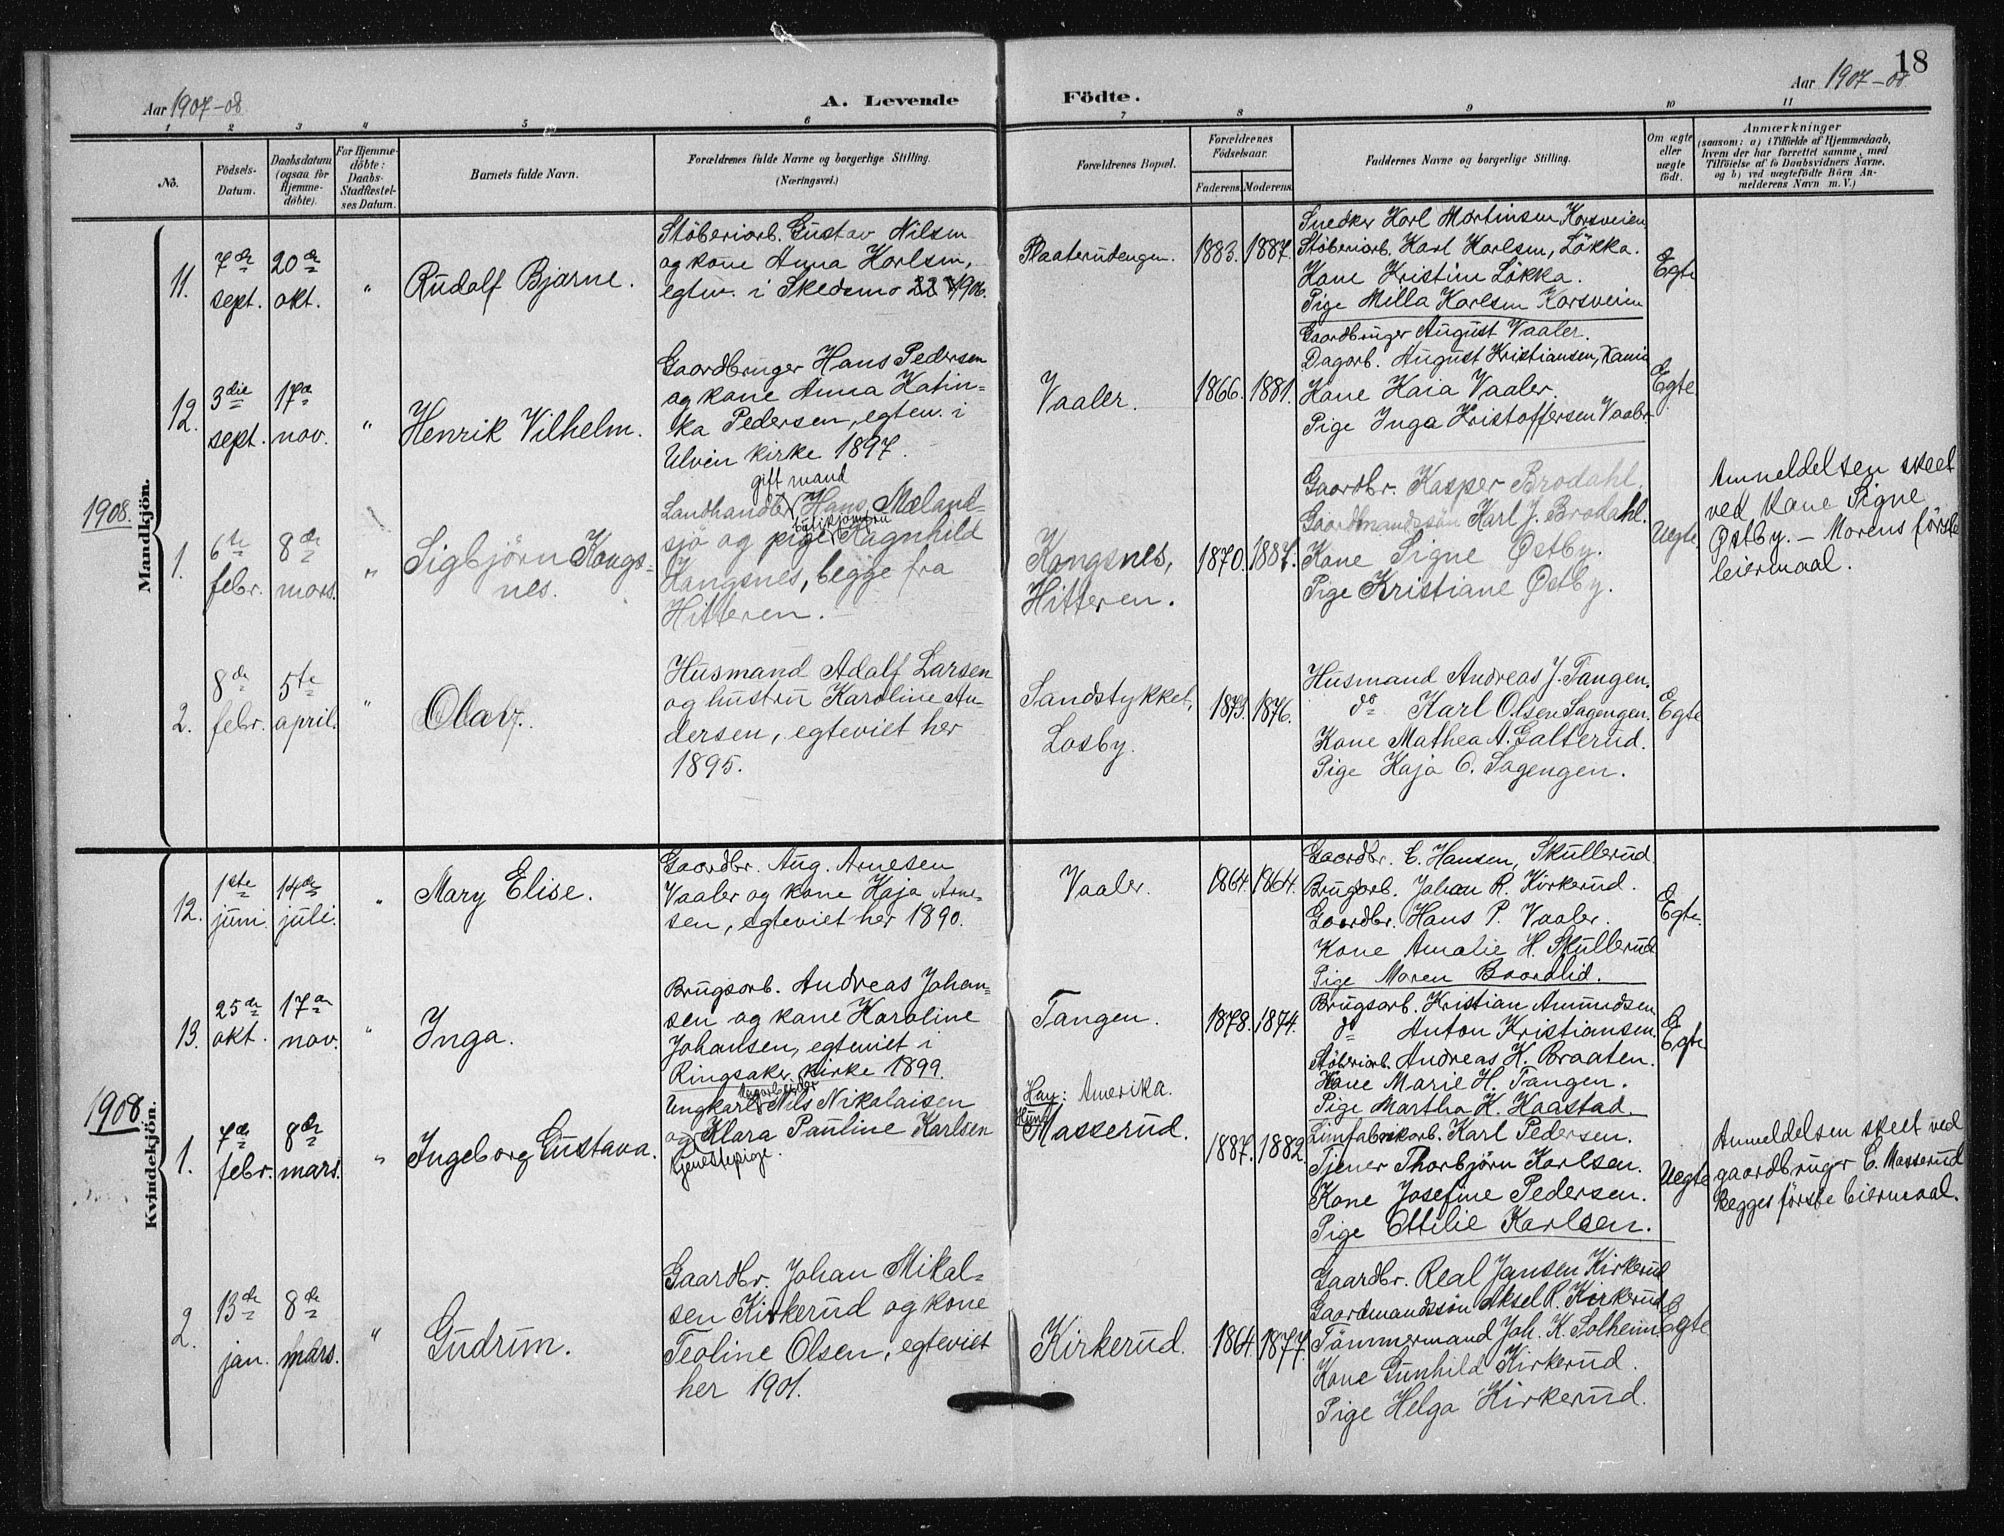 18
Aar 1907-08
A. Levende Födte.
Aar 1907-08
1 2 3 4 5 6 7 8 9 10 11
No.
Födsels-
Datum.
Daabsdatum
(ogsaa for
Hjemme-
döbte).
For Hjemme-
döbte:
Daabs-
Stadfæstel-
ses Datum.
Barnets fulde Navn.
Forældrenes fulde Navne og borgerlige Stilling.
(Næringsvei.)
Forældrenes Bopæl.
Forældrenes
Födselsaar.
Faderens. Moderens.
Faddernes Navne og borgerlige Stilling.
Om ægte
eller
uægte
født.
Anmærkninger
(saasom: a) i Tilfælde af Hjemmedaab,
hvem der har forrettet samme, med
Tilföielse af to Daabsvidners Navne,
og b) ved uægtefödte Börn An-
melderens Navn m. V.)
Mandkjön.
11.
7de
sept.
20de
okt.
"
Rudolf Bjarne.
Stöberiarb. Gustav Nilsen
og kone Anna Karlsen,
egtev. i Skedsmo 1906.
Plaaterudengen.
1883. 1887.
Snedker Karl Martinsen Korsveien
Stöberiarb. Karl Karlsen, Lökka.
Kone Kristine Lökka.
Pige Milla Karlsen Korsveien
Egte
12.
3die
sept.
17de
nov.
"
Henrik Vilhelm.
Gaardbruger Hans Pedersen
og kone Anna Katin-
ka Pedersen, egtev. i
Ulvin kirke 1897.
Vaaler.
1866. 1881.
Gaardbruger August Vaaler.
Dagarb. August Kristiansen,
Kone Kaia Vaaler.
Pige Inga Kristoffersen Vaaler
Egte.
1908.
1.
6te
febr.
8de
mars.
"
Sigbjörn Kongs-
nes.
gift mand
Landhandler Hans Mæland-
sjö og pige Ragnhild
Kongsnes, begge fra
Hitteren.
Kongsnes,
Hitteren.
1870. 1887.
Gaardbr. Kasper Brodahl.
Gaardmandssön Karl J. Brodahl.
Kone Signe Østby.
Pige Kristiane Østby.
Uegte.
Anmeldelsen skeet
ved kone Signe
Østby. – Morens förste
leiermaal.
2.
8de
febr.
5te
april.
"
Olav.
Husmand Adolf Larsen
og hustru Karoline An-
dersen, egteviet her
1895.
Sandstykket,
Losby.
1873. 1876.
Husmand Andreas J. Tangen.
do Karl Olsen Sagengen.
Kone Mathea A. Galterud.
Pige Kaja O. Sagengen.
Egte
Kvindekjön.
12.
1ste
juni.
14de
juli.
"
Mary Elise.
Gaardbr. Aug. Arnesen
Vaaler og kone Kaja Arne-
sen, egteviet her 1890.
Vaaler.
1864. 1864.
Gaardbr. E. Hansen, Skullerud.
Brugsarb. Johan R. Kirkerud.
Gaardbr. Hans P. Vaaler.
Kone Amalie H. Skullerud
Pige Maren Baardlid.
Egte.
13.
25de
okt.
17de
nov.
"
Inga.
Brugsarb. Andreas Johan-
sen og kone Karoline
Johansen, egteviet i
Ringsaker kirke 1899.
Tangen.
1878. 1874.
Brugsarb. Kristian Amundsen
do Anton Kristiansen.
Stöberiarb. Andreas K. Braaten.
Kone Marie H. Tangen.
Pige Martha K. Haastad.
Egte
1908.
1.
7de
febr.
8de
mars.
"
Ingeborg Gustava.
Ungkarl Nils Nikolaisen
og Klara Pauline Karlsen
tjenestepige.
Han: Amerika.
Hun:
Masserud.
1887. 1882
Limfabrikarb. Karl Pedersen.
Tjener Thorbjörn Karlsen.
Kone Josefine Pedersen.
Pige Ottilie Karlsen.
Uegte
Anmeldelsen skeet ved
gaardbruger C. Masserud
Begges förste leiermaal.
2.
13de
jan.
8de
mars.
"
Gudrun.
Gaardbr. Johan Mikal-
sen Kirkerud og kone
Teoline Olsen, egteviet
her 1901.
Kirkerud.
1864. 1877.
Gaardbr. Real Jansen Kirkerud
Gaardmandssön Aksel R. Kirkerud
Tömmermand Joh. K. Solheim
Kone Gunhild Kirkerud.
Pige Helga Kirkerud.
Egte